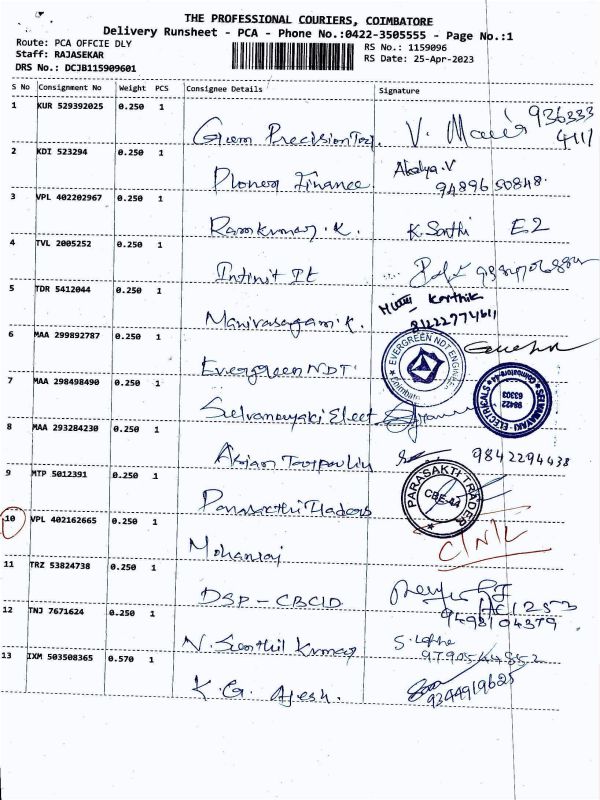 THE PROFESSIONAL COURIERS, COIMBATORE
Delivery Runsheet - PCA - Phone No.:0422-3505555 - Page No.:1
Route: PCA OFFCIE DLY
RS No.: 1159096
Staff: RAJASEKAR
RS Date: 25-Apr-2023
DRS No.: DCJB115909601
S No Consignment No Weight PCS Consignee Details Signature
1 KUR 529392025 0.250 1
Gem Precision V. 936333
4111
2 KDI 523294 0.250 1
Finance Akalya.V
9489650848.
3 VPL 402202967 0.250 1
Ramkumar. K. K. Sathi E2
4 TVL 2005252 0.250 1
5 TDR 5412044 0.250 1
Karthik
Manivasagam K. 81222774611
6 MAA 299892787 0.250 1
Evergreen NDT EVERGREEN NDT
7 MAA 298498490 0.250 1
Selvanayaki Elect SELVANAYAKI ELECTRICALS 98422 63303
8 MAA 293284230 0.250 1
9842294438
9 MTP 5012391 0.250 1
Parasakthi Traders PARASAKTI TRADER CBE-44
10 VPL 402162665 0.250 1
Mohanraj C/N/L
11 TRZ 53824738 0.250 1
DSP - CBCID HC1253
9498104379
12 TNJ 7671624 0.250 1
N. Senthil Kumar S.
97905 44852
13 IXM 503508365 0.570 1
K. G. Ajesh. 9344919625